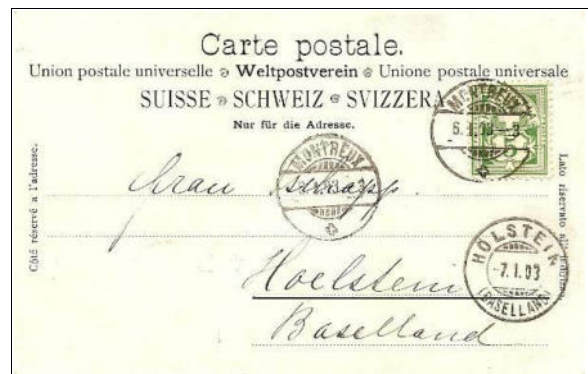 Carte postale.
Union postale universelle Weltpostverein Unione postale universale
SUISSE SCHWEIZ SVIZZERA
Nur für die Adresse.
Côté réservé à l'adresse.
Lato riservato all'indirizzo.
MONTREUX
5
MONTREUX
Frau
HÖLSTEIN
-7.I.03
(BASELLAND)
Hoelstein
Baselland